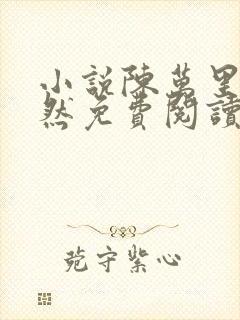 小說陳萬里
然免費閱讀
菀守紫心